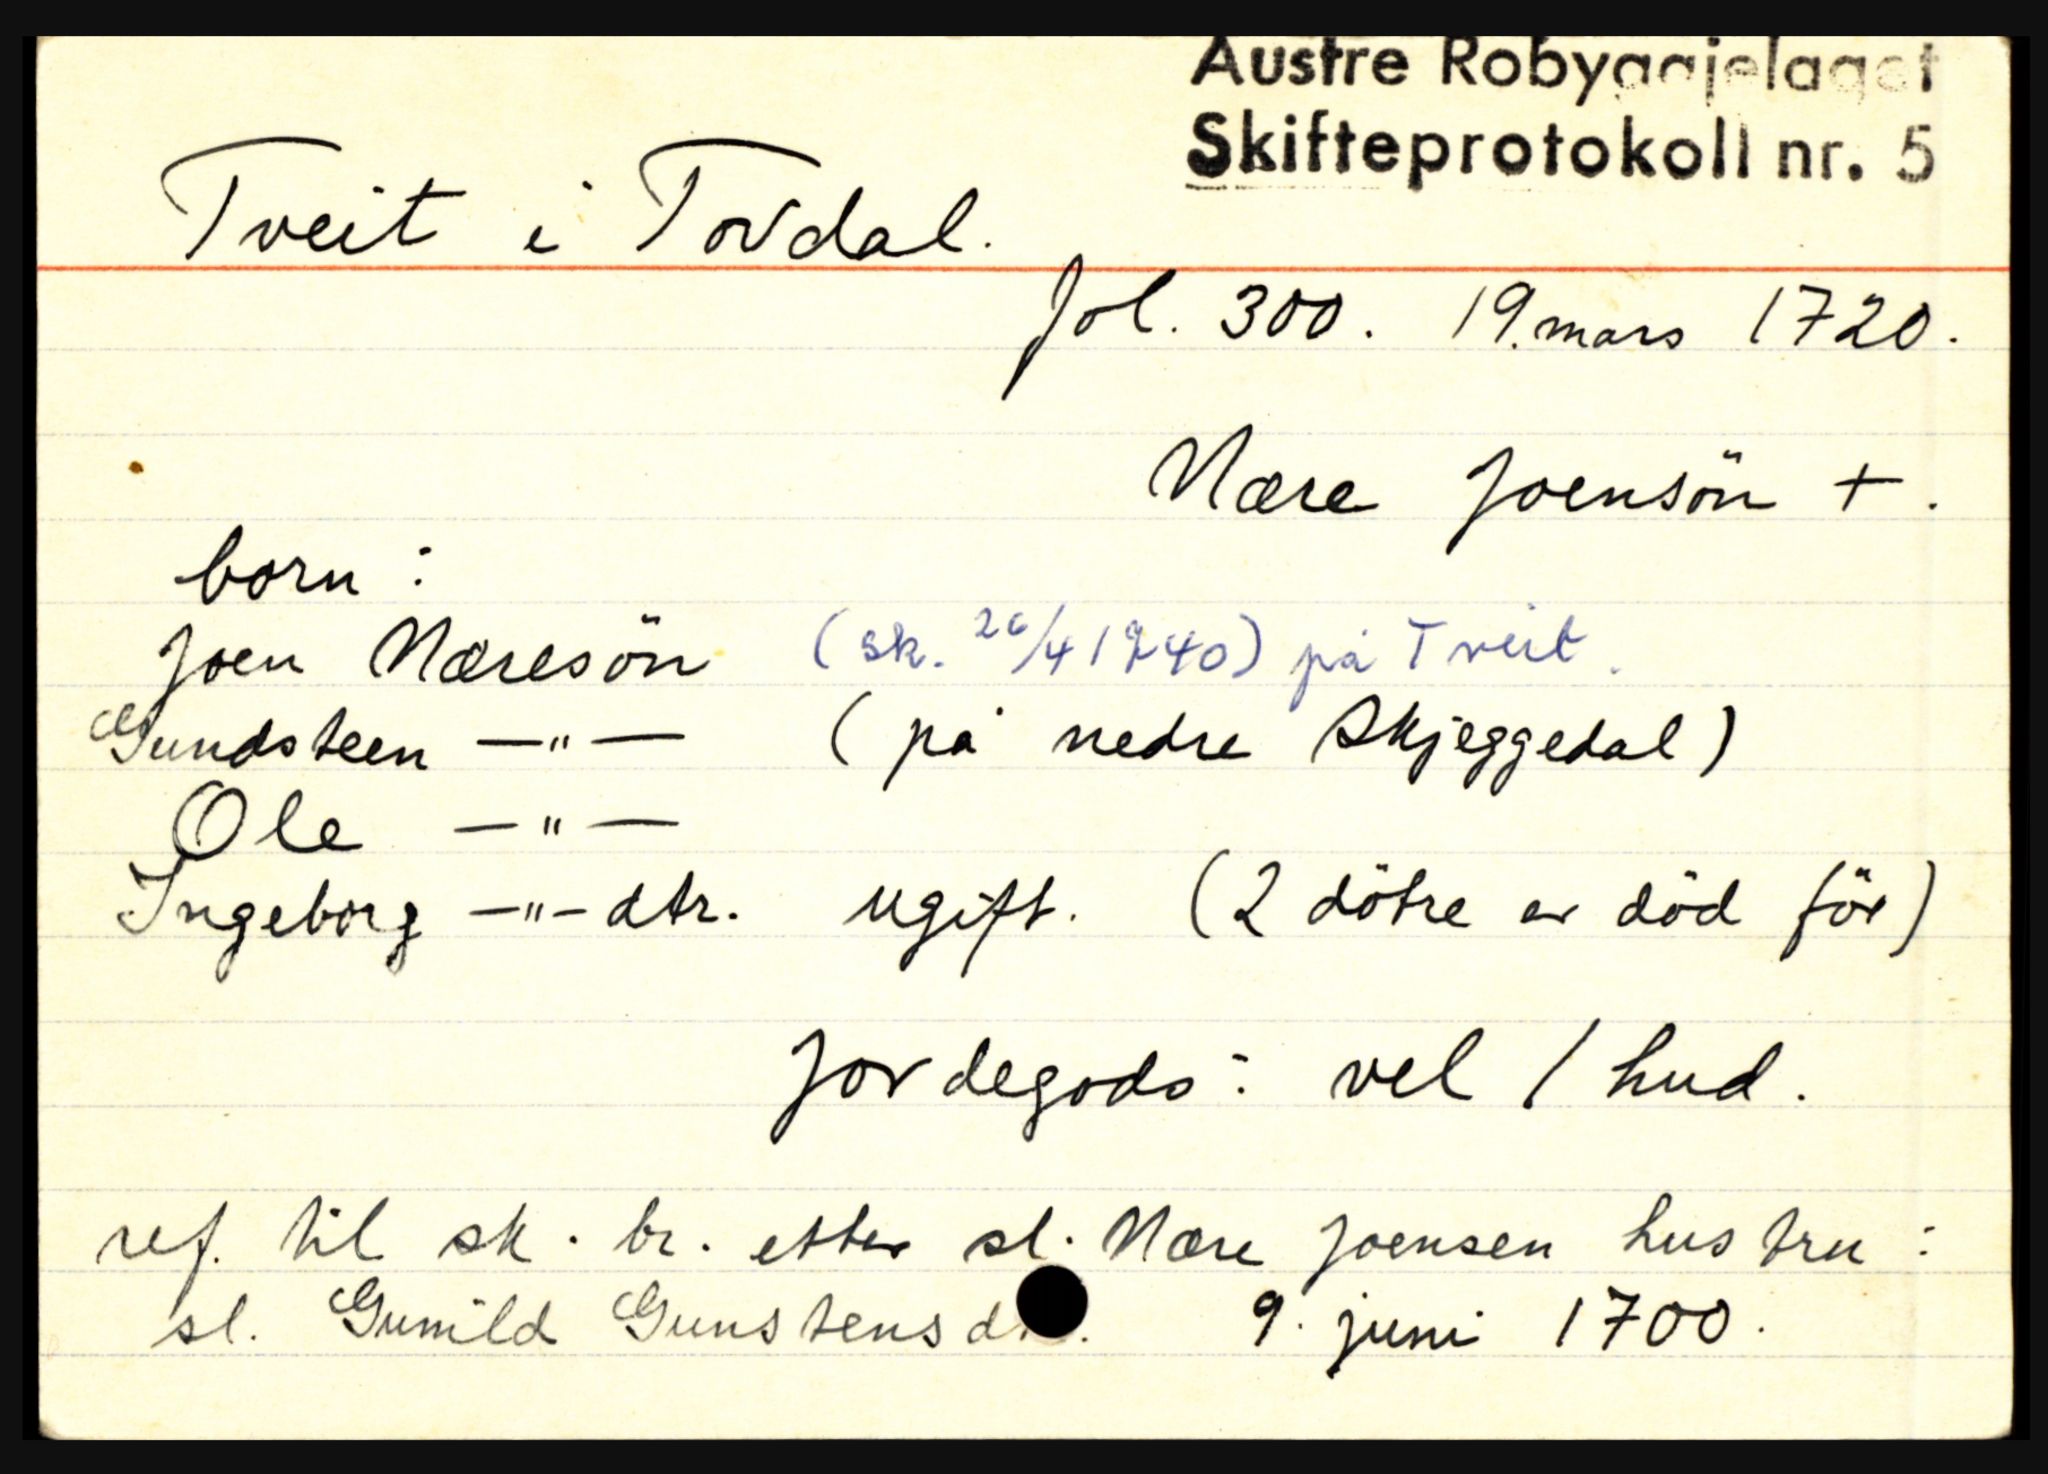 Austre Robyggjelaget
Skifteprotokoll nr. 5
Tveit i Tovdal.
fol. 300. 19. mars 1720.
Nære Joensön +.
born :
Joen Næresön (sk. 26/4 1740) på Tveit.
Gundsteen —"— (på nedre Skjeggedal)
Ole —"—
Ingeborg —"— dtr. ugift. (2 dötre er död för)
Jordegods: vel 1 hud.
ref. til sk. br. etter sl. Nære Joensen hustru :
sl. Gunild Gunstensd 9. juni 1700.